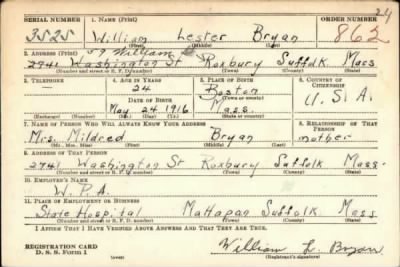 24
SERIAL NUMBER 1. NAME (Print) ORDER NUMBER
3525 William Lester Bryan 862
(First) (Middle) (Last)
59 William
2. ADDRESS (Print)
2941 Washington St Roxbury Suffolk Mass
(Number and street or R. F. D. number) (Town) (County) (State)
3. TELEPHONE 4. AGE IN YEARS 5. PLACE OF BIRTH 6. COUNTRY OF CITIZENSHIP
— 24 Boston
DATE OF BIRTH (Town or county)
May 24 1916 Mass. U.S.A.
(Exchange) (Number) (Mo.) (Day) (Yr.) (State or country)
7. NAME OF PERSON WHO WILL ALWAYS KNOW YOUR ADDRESS 8. RELATIONSHIP OF THAT PERSON
Mrs. Mildred Bryan mother
(Mr., Mrs., Miss) (First) (Middle) (Last)
9. ADDRESS OF THAT PERSON
2941 Washington St Roxbury Suffolk Mass.
(Number and street or R. F. D. number) (Town) (County) (State)
10. EMPLOYER'S NAME
W.P.A.
11. PLACE OF EMPLOYMENT OR BUSINESS
State Hospital Mattapan Suffolk Mass
(Number and street or R. F. D. number) (Town) (County) (State)
I AFFIRM THAT I HAVE VERIFIED ABOVE ANSWERS AND THAT THEY ARE TRUE.
REGISTRATION CARD
D. S. S. Form 1 (over) William L. Bryan
(Registrant's signature)